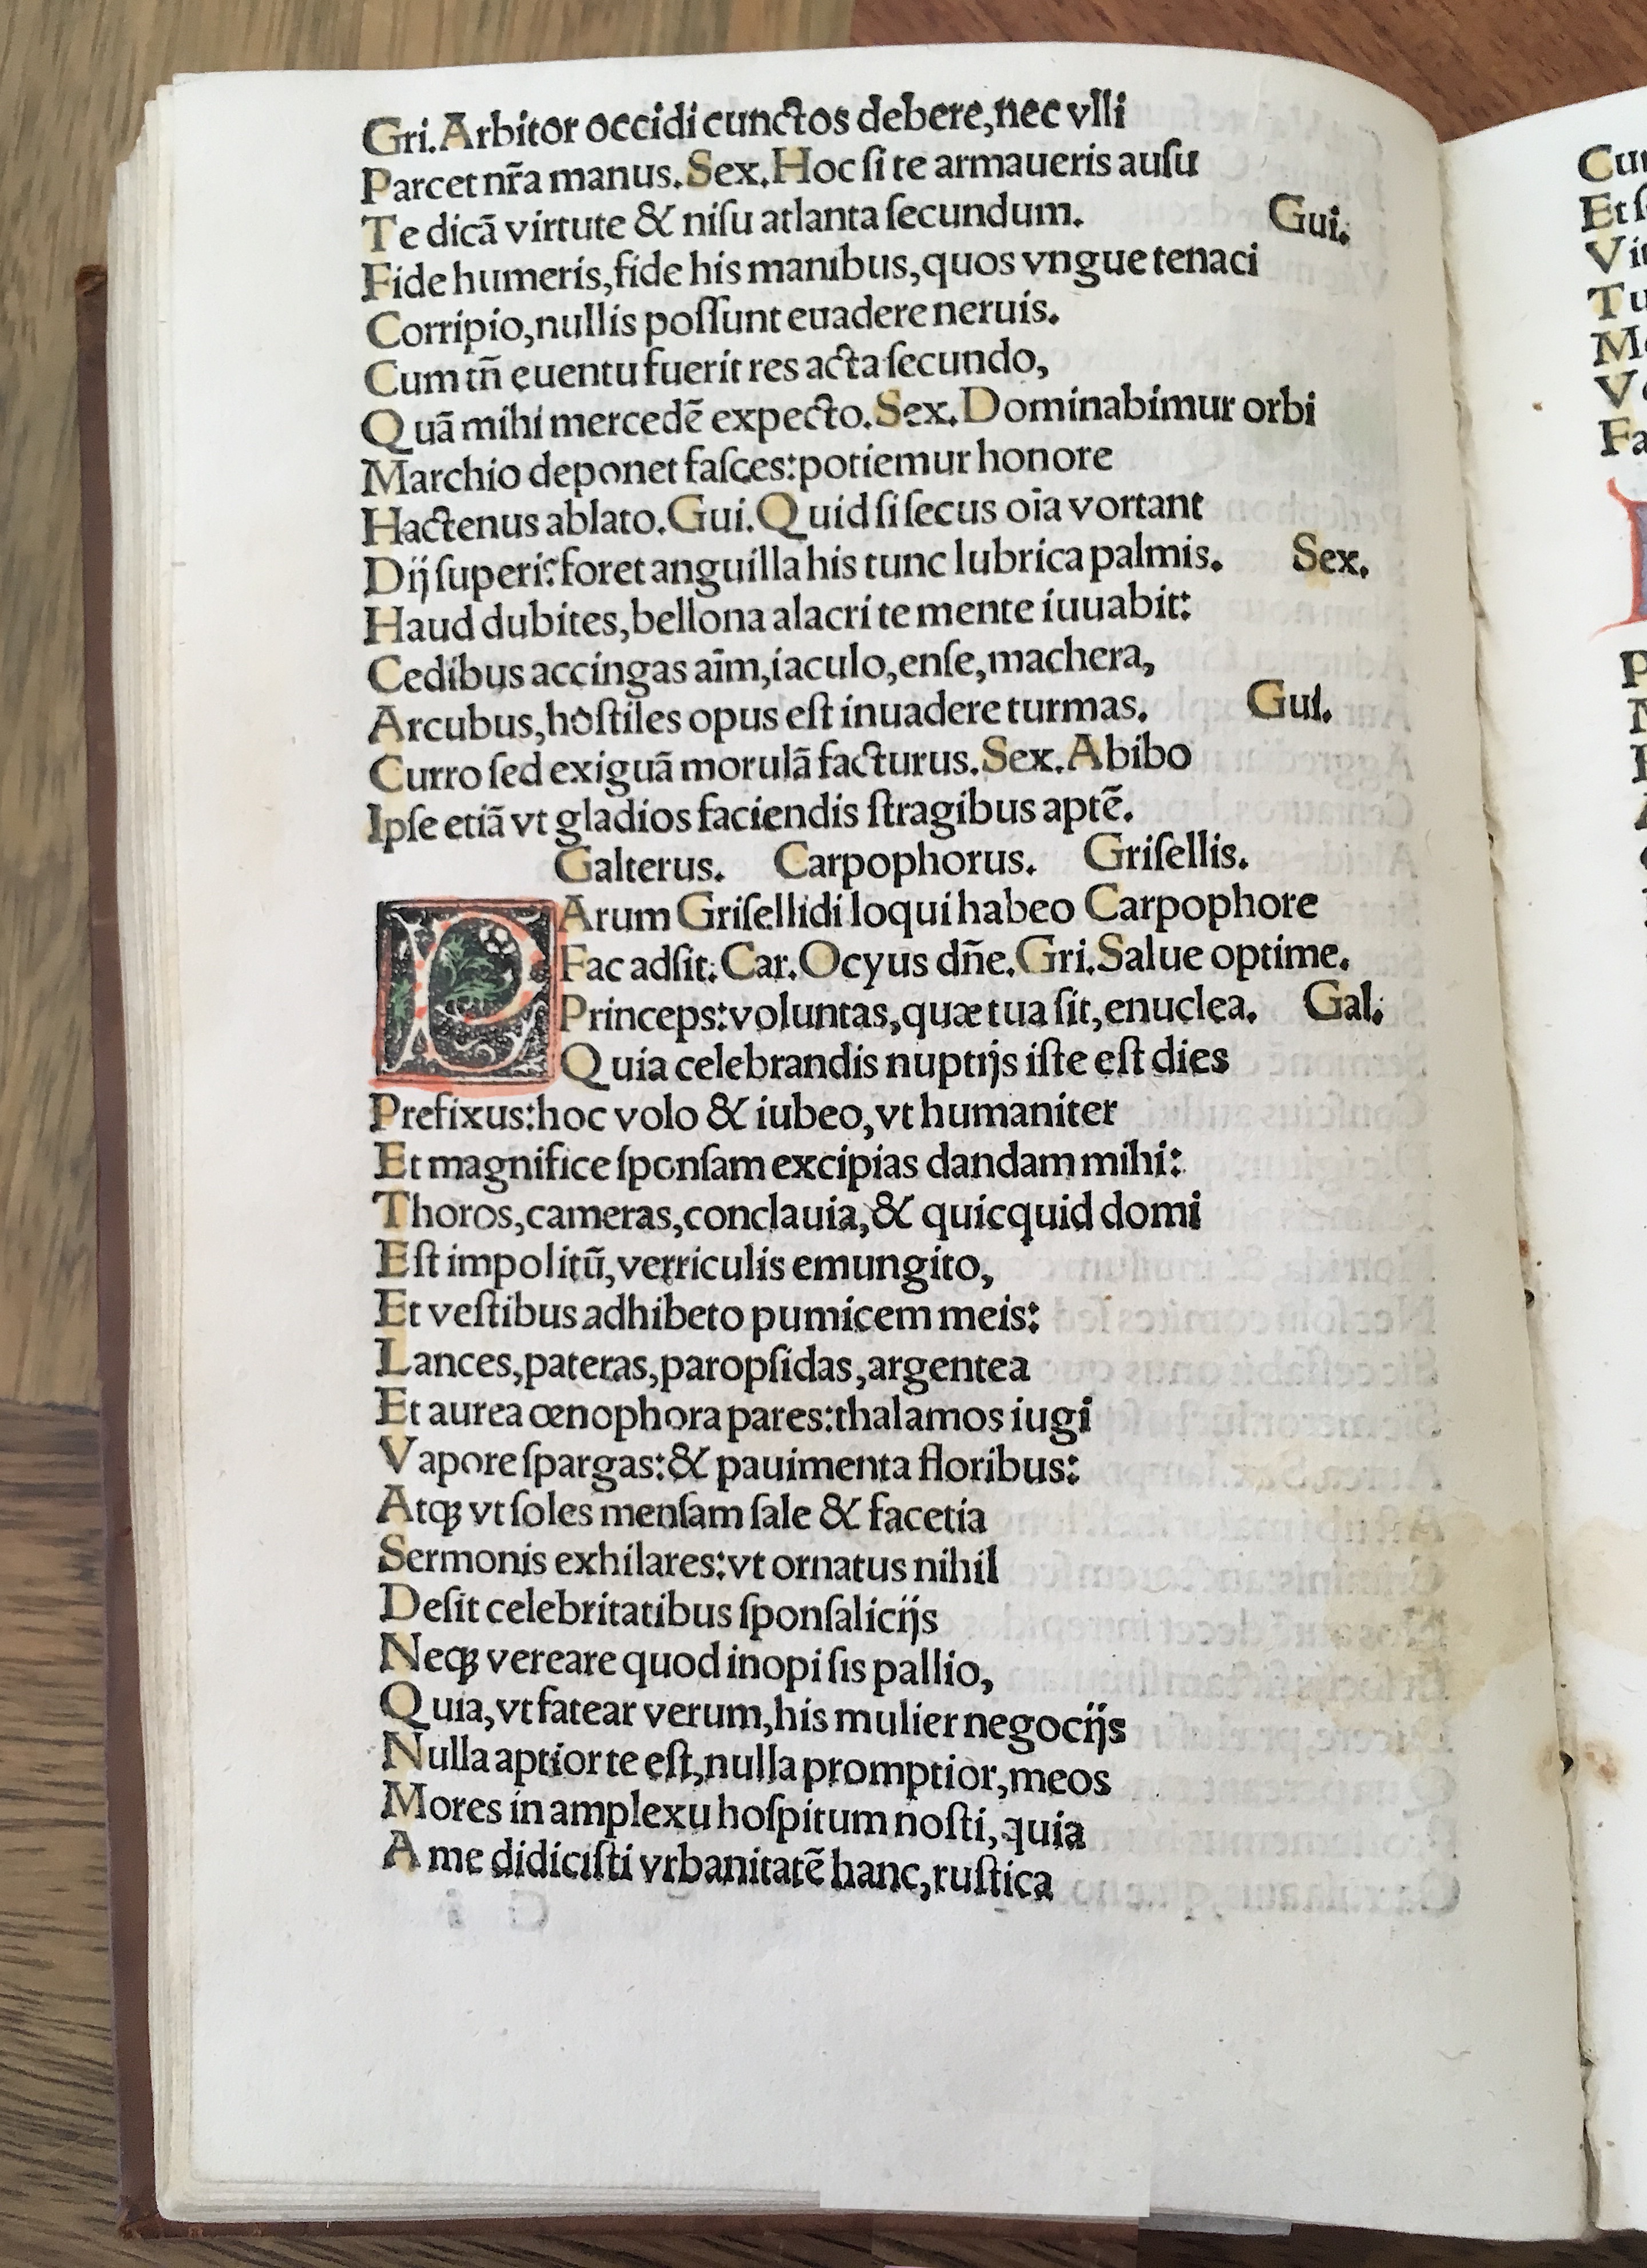 Gri.Arbitor occidi cunctos debere,nec vlli
Parcet nr̃a manus.Sex.Hoc ſi te armaueris auſu
Te dicã virtute & niſu atlanta ſecundum. Gui.
Fide humeris,fide his manibus,quos vngue tenaci
Corripio,nullis poſſunt euadere neruis.
Cum tñ euentu fuerit res acta ſecundo,
Quã mihi mercedẽ expecto.Sex.Dominabimur orbi
Marchio deponet faſces:potiemur honore
Hactenus ablato.Gui.Quid ſi ſecus oĩa vortant
Dij ſuperi:foret anguilla his tunc lubrica palmis. Sex.
Haud dubites,bellona alacri te mente iuuabit:
Cedibus accingas aĩm,iaculo,enſe,machera,
Arcubus,hoſtiles opus eſt inuadere turmas. Gui.
Curro ſed exiguã morulã facturus.Sex.Abibo
Ipſe etiã vt gladios faciendis ſtragibus aptẽ.
Galterus. Carpophorus. Griſellis.
PArum Griſellidi loqui habeo Carpophore
Fac adſit.Car.Ocyus dñe.Gri.Salue optime.
Princeps:voluntas,quæ tua ſit,enuclea. Gal.
Quia celebrandis nuptijs iſte eſt dies
Prefixus:hoc volo & iubeo,vt humaniter
Et magnifice ſponſam excipias dandam mihi:
Thoros,cameras,conclauia,& quicquid domi
Eſt impolitũ,verriculis emungito,
Et veſtibus adhibeto pumicem meis:
Lances,pateras,paropſidas,argentea
Et aurea œnophora pares:thalamos iugi
Vapore ſpargas:& pauimenta floribus:
Atqꝫ vt ſoles menſam ſale & facetia
Sermonis exhilares:vt ornatus nihil
Deſit celebritatibus ſponſalicijs
Neqꝫ vereare quod inopi ſis pallio,
Quia,vt fatear verum,his mulier negocijs
Nulla aptior te eſt,nulla promptior,meos
Mores in amplexu hoſpitum noſti,quia
A me didiciſti vrbanitatẽ hanc,ruſtica
Cur
Et
Vi
Tu
M
V
Fa